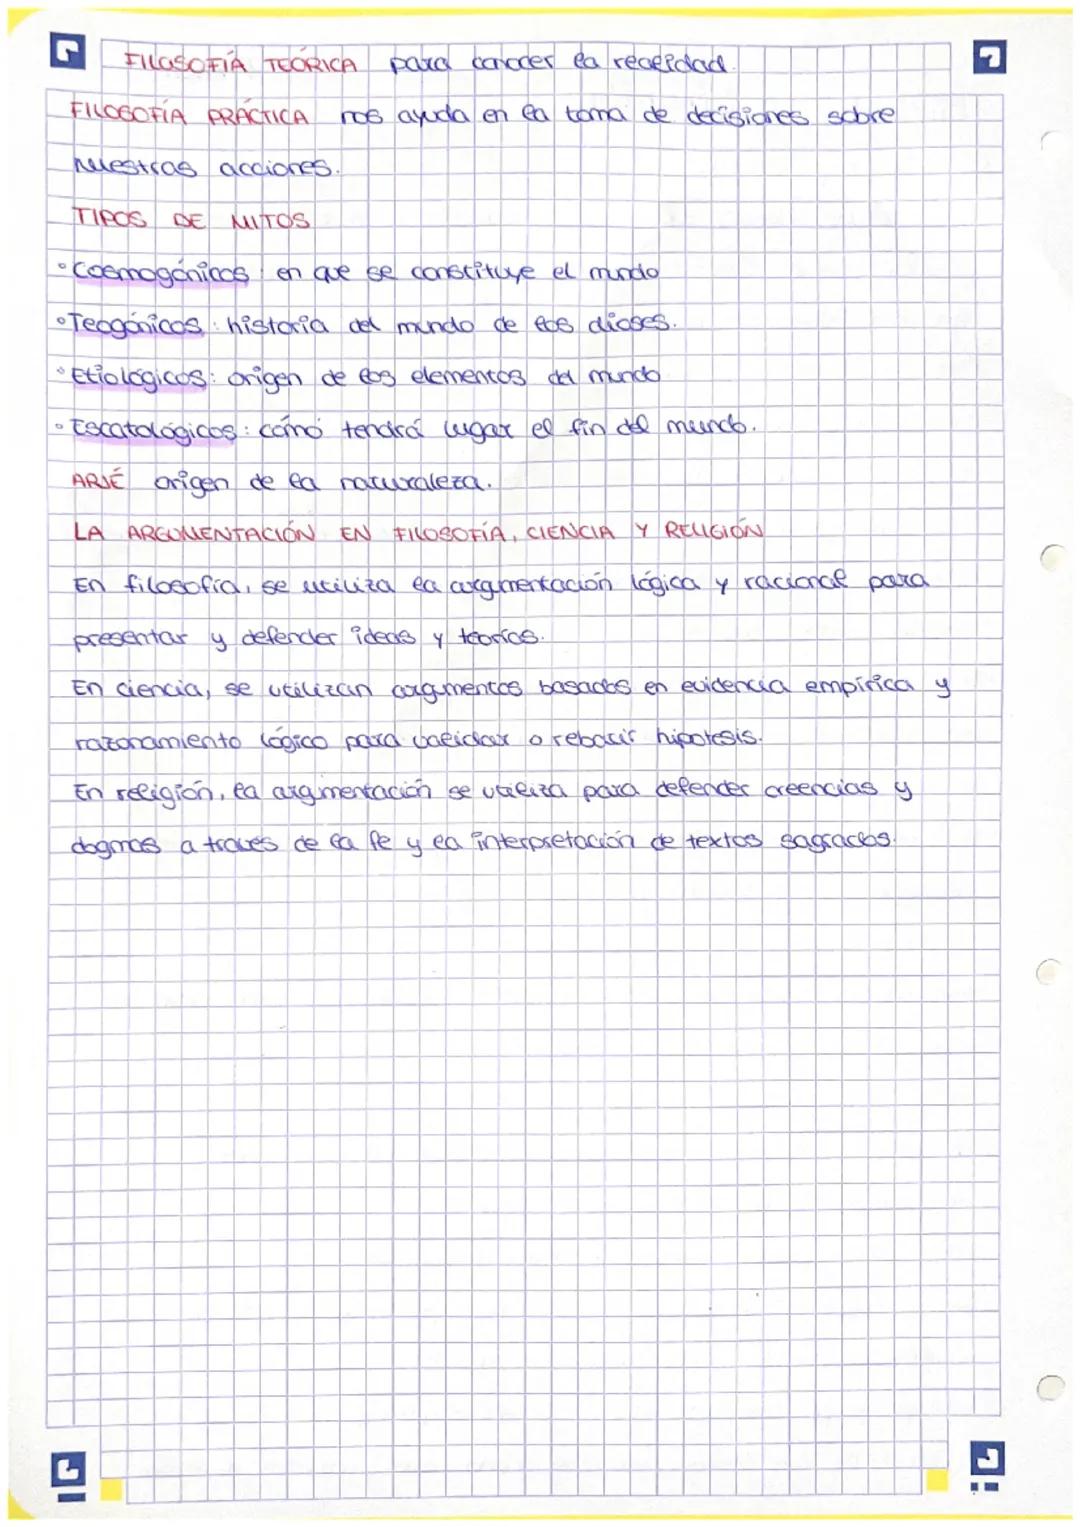 FILOSOFÍA TEÓRICA para conocer la realidad.
FILOSOFÍA PRÁCTICA nos ayuda en la toma de decisiones sobre
nuestras acciones.
TIPOS DE MITOS
• Cosmogónicos: en que se constituye el mundo
• Teogónicos: historia del mundo de los dioses.
• Etiológicos: origen de los elementos del mundo
• Escatológicos: cómo tendrá lugar el fin del mundo.
ARJÉ origen de la naturaleza.
LA ARGUMENTACIÓN EN FILOSOFÍA, CIENCIA Y RELIGIÓN
En filosofía, se utiliza la argumentación lógica y racional para
presentar y defender ideas y teorías.
En ciencia, se utilizan argumentos basados en evidencia empírica y
razonamiento lógico para validar o rebatir hipotesis.
En religión, la argumentación se utiliza para defender creencias y
dogmas a traves de la fe y la interpretación de textos sagrados.